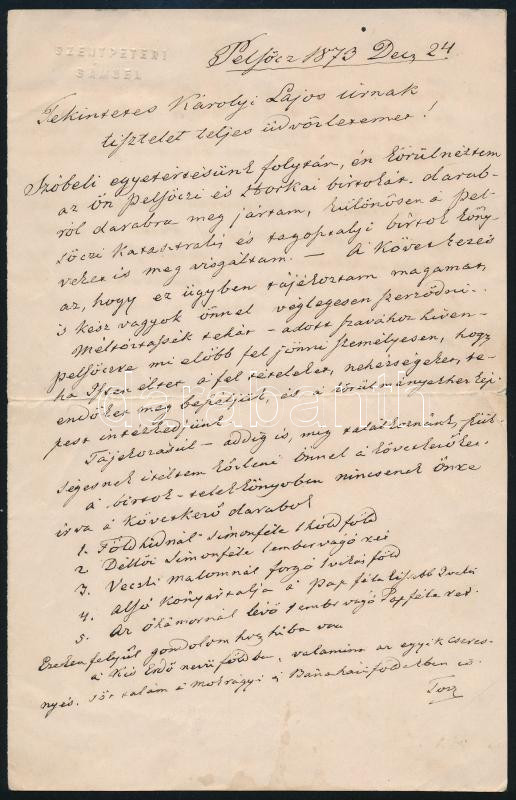 SZENTPÉTERI
SÁMUEL
Pelsőcz 1873 Dec. 24.
Tekintetes Károlyi Lajos Úrnak
tisztelet teljes üdvözletemet!
Szóbeli egyetértésünk folytán, én körülnéztem
az ön Pelsőczi és birtokát. darab-
ról darabra meg jártam, különösen a Pel-
sőczi katasztralij és tagoptalji birtok köny-
veket is meg visgáltam. – A következés
az, hogy ez ügyben tájékoztam magamat,
is kész vagyok önnel véglegesen szerződni. –
Méltóztassék tehát – adott szavához hiven –
Pelsőczre mi előbb fel jönni személyesen, hogy
ha Isten éltet, a fel tételeket, nehézségeket, te-
endőket meg beszéljük, és a körülményekhez ké-
pest intézkedjünk.
Tájékozásul – addig is, míg találkoznánk, szük-
ségesnek itéltem közleni önnel a következőket.
a birtok-telekkönyvben nincsenek önre
irva a következő darabok
1. Földhidnál Simonféle 1 hold föld
2 Déllői Simonféle 1 embervágó rét
3. Veczki malomnál forgó föld
4. Alsó Könyartalja a Papféle
5. Az Óhámornál lévő 1 ember vágó Papféle rét.
Ezeken felyűl gondolom hogy hiba van
a Kis Erdő nevű földben, valamint az egyik cseres-
nyés. Sőt talám a földekben is.